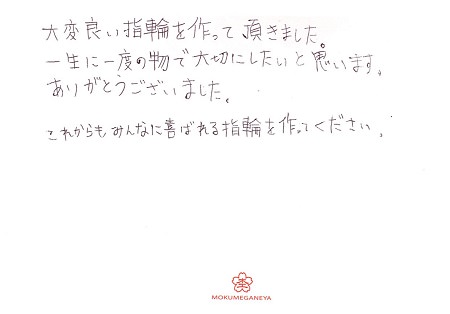 大変良い指輪を作って頂きました。
一生に一度の物で大切にしたいと思います。
ありがとうございました。
これからもみんなに喜ばれる指輪を作ってください。
MOKUMEGANEYA